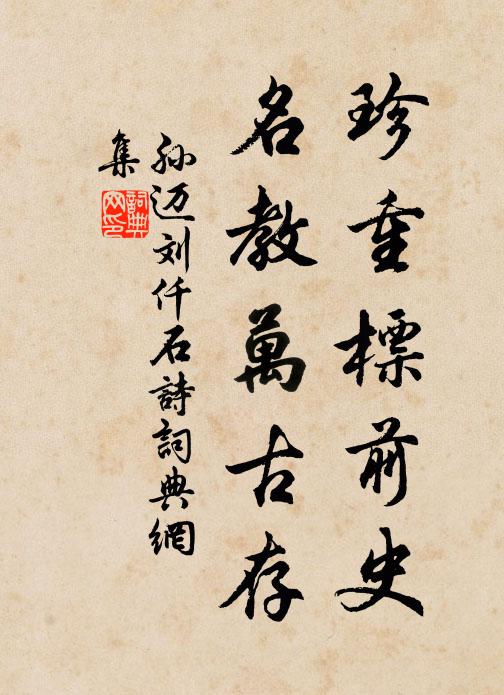 珍重標前史
名教萬古存
孙迈刘仟石詩詞典網
集
詞典
网印